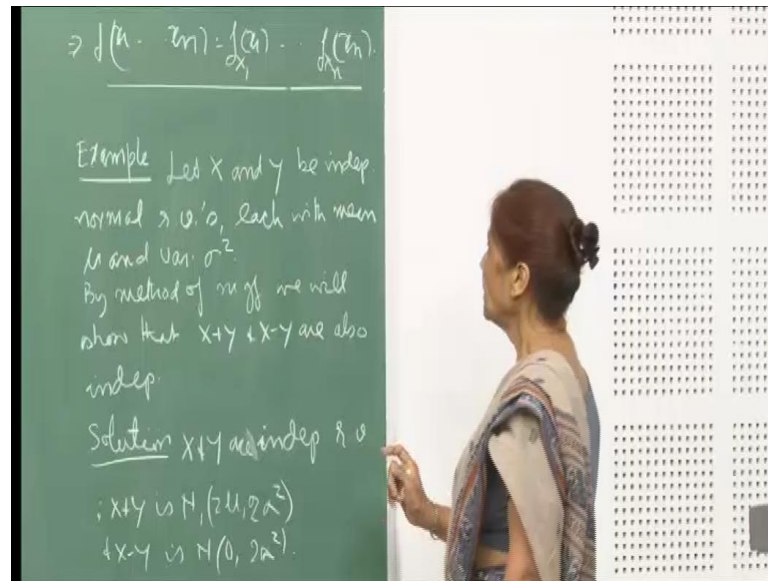 ⇒ f(x1 ... xn) = f_X1(x1) ... f_Xn(xn).
Example Let X and Y be indep
normal r.v.'s, each with mean
μ and var. σ².
By method of mgf we will
show that X+Y & X-Y are also
indep.
Solution X & Y are indep r.v
∴ X+Y is N(2μ, 2σ²)
& X-Y is N(0, 2σ²).